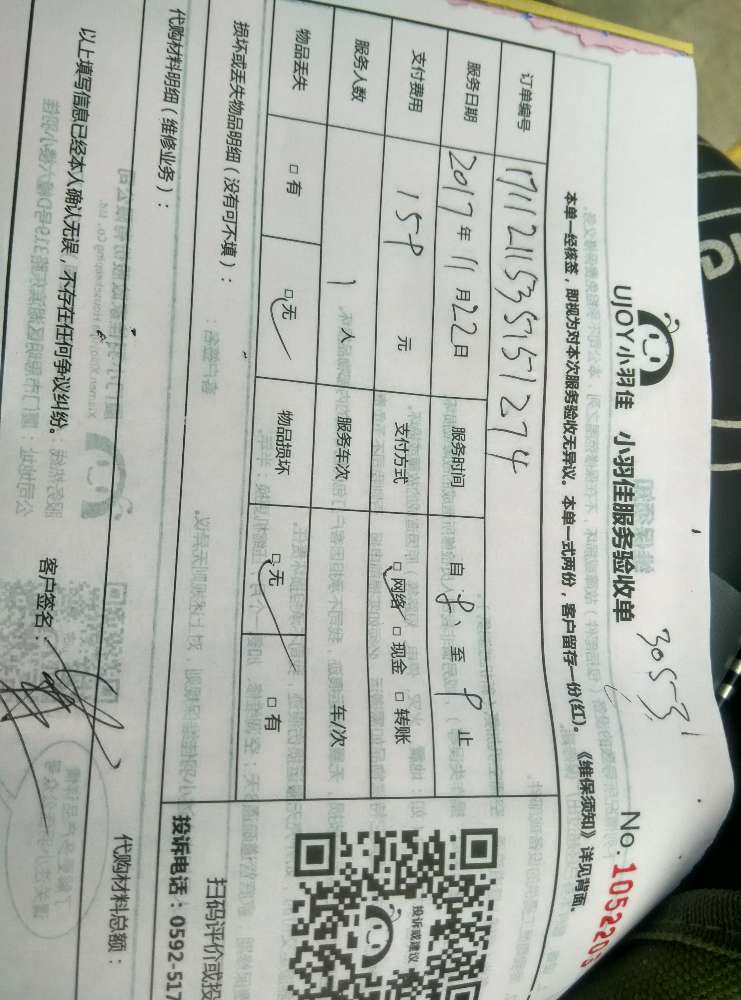 30553
UJOY小羽佳 小羽佳服务验收单
No.
本单一经核签，即视为对本次服务验收无异议。本单一式两份，客户留存一份(红)。《维保须知》详见背面。
订单编号
服务日期 2017年11月22日 服务时间 自 至 止
支付费用 159 元 支付方式 □网络 □现金 □转账
服务人数 1 人 服务车次 车/次
物品丢失 □有 □无 物品损坏 □无 □有
损坏或丢失物品明细（没有可不填）：
代购材料明细（维修业务）： 代购材料总额：
以上填写信息已经本人确认无误，不存在任何争议纠纷。 客户签名：
投诉或建议
扫码评价或投
投诉电话：0592-517